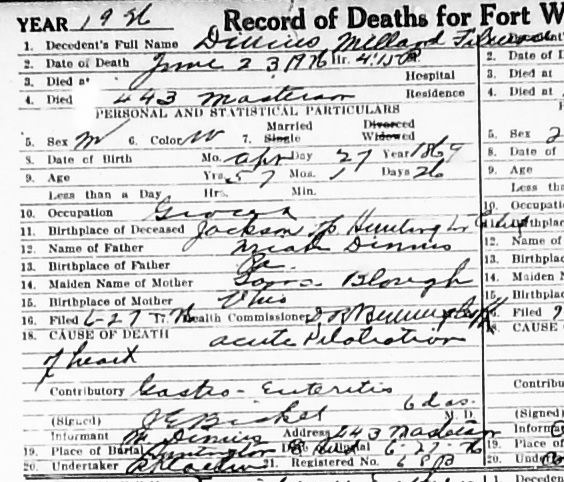 YEAR 1926 Record of Deaths for Fort W
1. Decedent's Full Name Dinius Millard Filmore
2. Date of Death June 23 1926 Hr. 4:15 P
3. Died at Hospital
4. Died 443 Masterson Residence
PERSONAL AND STATISTICAL PARTICULARS
5. Sex M 6. Color W 7. Married Single Divorced Widowed
8. Date of Birth Mo. Apr Day 27 Year 1869
9. Age Yrs. 57 Mos. 1 Days 26
Less than a Day Hrs. Min.
10. Occupation Grocer
11. Birthplace of Deceased Jackson Tp Huntington
12. Name of Father Dinius
13. Birthplace of Father Pa.
14. Maiden Name of Mother Blough
15. Birthplace of Mother Ohio
16. Filed 6-27 Health Commissioner
18. CAUSE OF DEATH acute Dilatation
of heart
Contributory Gastro-Enteritis
6 das.
(Signed) J E Bickel M. D.
Informant M Dinius Address 243 Masterson
19. Place of Burial Huntington 6-27-26
20. Undertaker 21. Registered No. 681
2. Date of D
3. Died at
4. Died
5. Sex
8. Date of
9. Age
Less tha
10. Occupati
Birthplac
12. Name of
13. Birthpla
14. Maiden N
15. Birthpla
16. Filed
18. CAUSE
Contribu
(Signed)
Informa
19. Place of
20. Und
1. Deceden